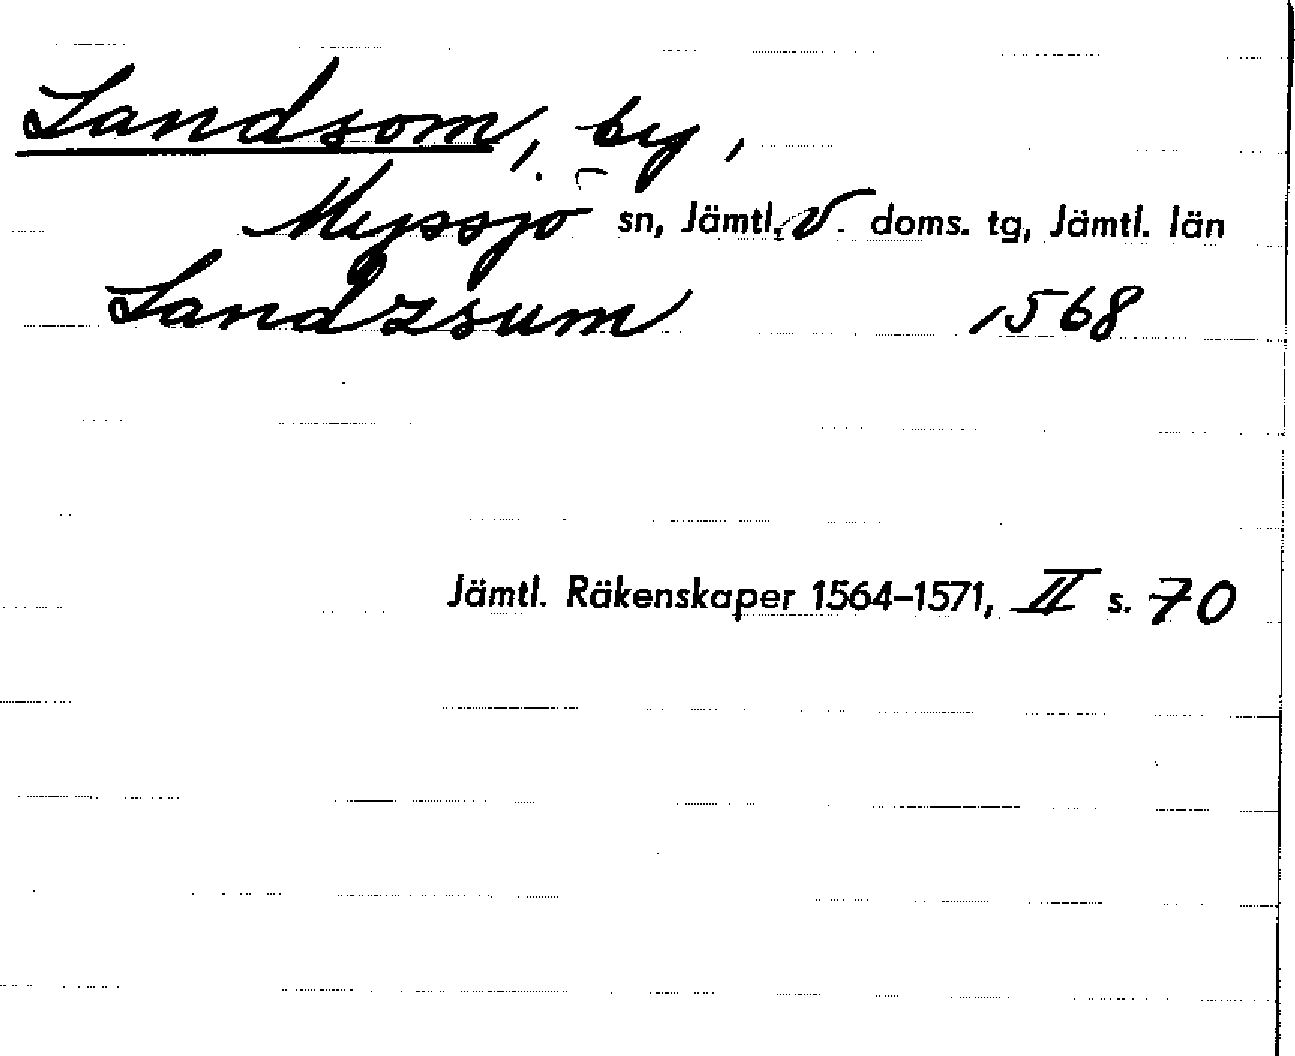 Landsom, by,
Myssjö sn, Jämtl. V. doms. tg, Jämtl. län
Landzsum 1568
Jämtl. Räkenskaper 1564–1571, II s. 70